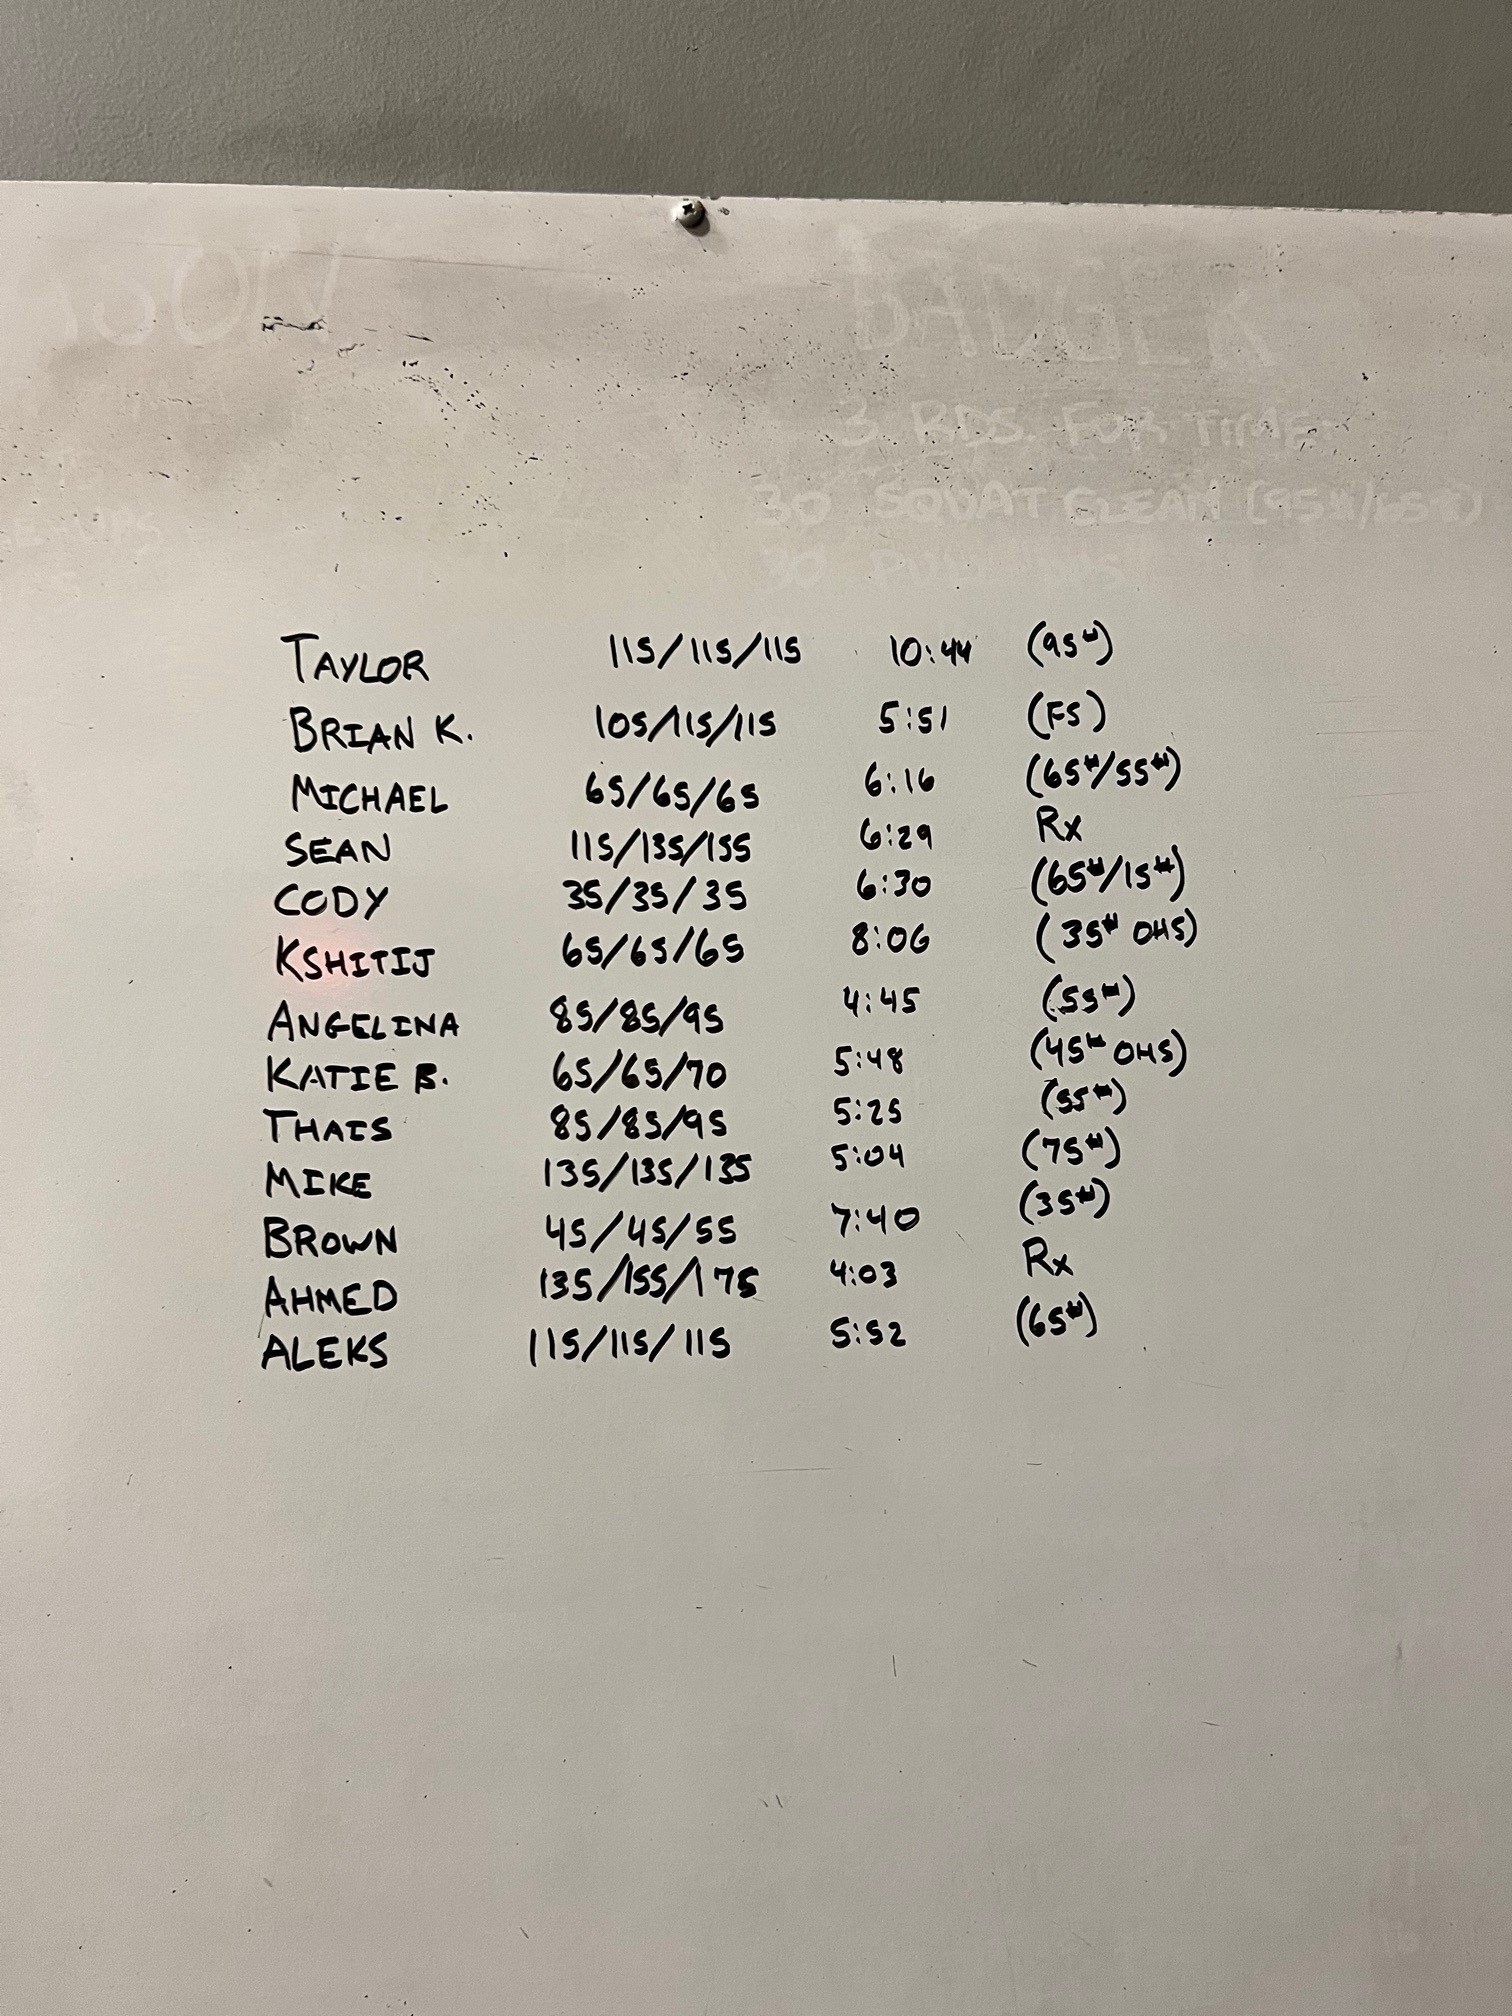 BADGER
3 RDS. FOR TIME
30 SQUAT CLEAN (95#/65#)
30 PULL UPS
TAYLOR 115/115/115 10:44 (95#)
BRIAN K. 105/115/115 5:51 (FS)
MICHAEL 65/65/65 6:16 (65#/55#)
SEAN 115/135/155 6:29 Rx
CODY 35/35/35 6:30 (65#/15#)
KSHITIJ 65/65/65 8:06 (35# OHS)
ANGELINA 85/85/95 4:45 (55#)
KATIE B. 65/65/70 5:48 (45# OHS)
THAIS 85/85/95 5:25 (55#)
MIKE 135/135/135 5:04 (75#)
BROWN 45/45/55 7:40 (35#)
AHMED 135/155/175 4:03 Rx
ALEKS 115/115/115 5:52 (65#)